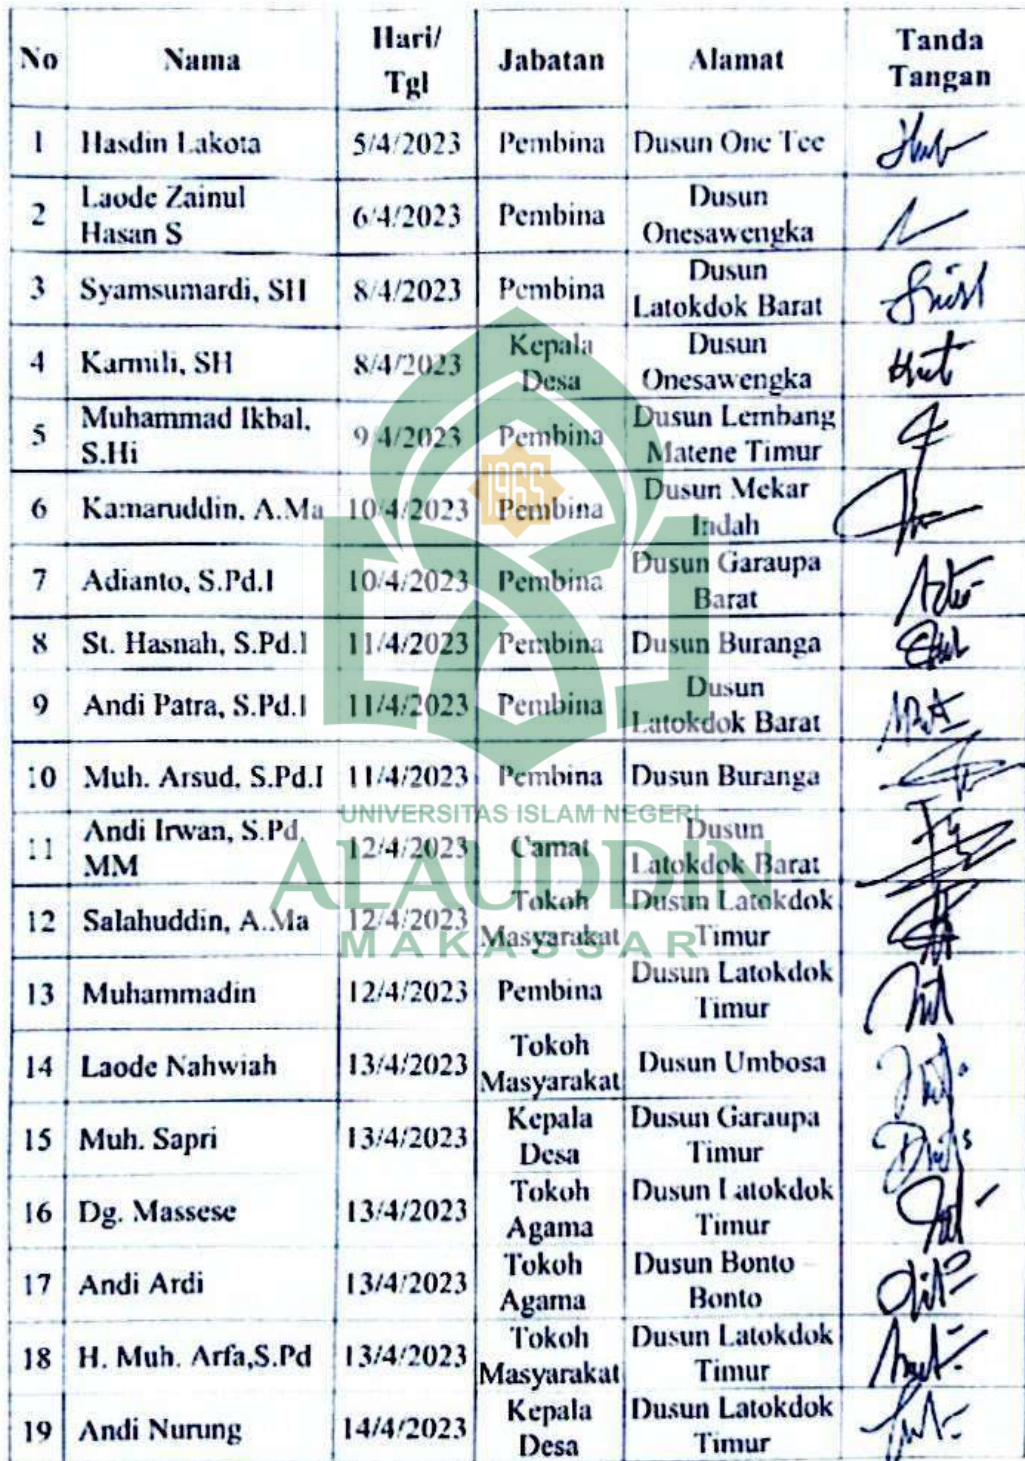 No Nama Hari/ Tgl Jabatan Alamat Tanda Tangan
1 Hasdin Lakota 5/4/2023 Pembina Dusun One Tee
2 Laode Zainul Hasan S 6/4/2023 Pembina Dusun Onesawengka
3 Syamsumardi, SH 8/4/2023 Pembina Dusun Latokdok Barat
4 Karmili, SH 8/4/2023 Kepala Desa Dusun Onesawengka
5 Muhammad Ikbal, S.Hi 9/4/2023 Pembina Dusun Lembang Matene Timur
6 Kamaruddin, A.Ma 10/4/2023 Pembina Dusun Mekar Indah
7 Adianto, S.Pd.I 10/4/2023 Pembina Dusun Garaupa Barat
8 St. Hasnah, S.Pd.I 11/4/2023 Pembina Dusun Buranga
9 Andi Patra, S.Pd.I 11/4/2023 Pembina Dusun Latokdok Barat
10 Muh. Arsud, S.Pd.I 11/4/2023 Pembina Dusun Buranga
11 Andi Irwan, S.Pd, MM 12/4/2023 Camat Dusun Latokdok Barat
12 Salahuddin, A.Ma 12/4/2023 Tokoh Masyarakat Dusun Latokdok Timur
13 Muhammadin 12/4/2023 Pembina Dusun Latokdok Timur
14 Laode Nahwiah 13/4/2023 Tokoh Masyarakat Dusun Umbosa
15 Muh. Sapri 13/4/2023 Kepala Desa Dusun Garaupa Timur
16 Dg. Massese 13/4/2023 Tokoh Agama Dusun Latokdok Timur
17 Andi Ardi 13/4/2023 Tokoh Agama Dusun Bonto Bonto
18 H. Muh. Arfa,S.Pd 13/4/2023 Tokoh Masyarakat Dusun Latokdok Timur
19 Andi Nurung 14/4/2023 Kepala Desa Dusun Latokdok Timur
1965
UNIVERSITAS ISLAM NEGERI
ALAUDDIN
MAKASSAR